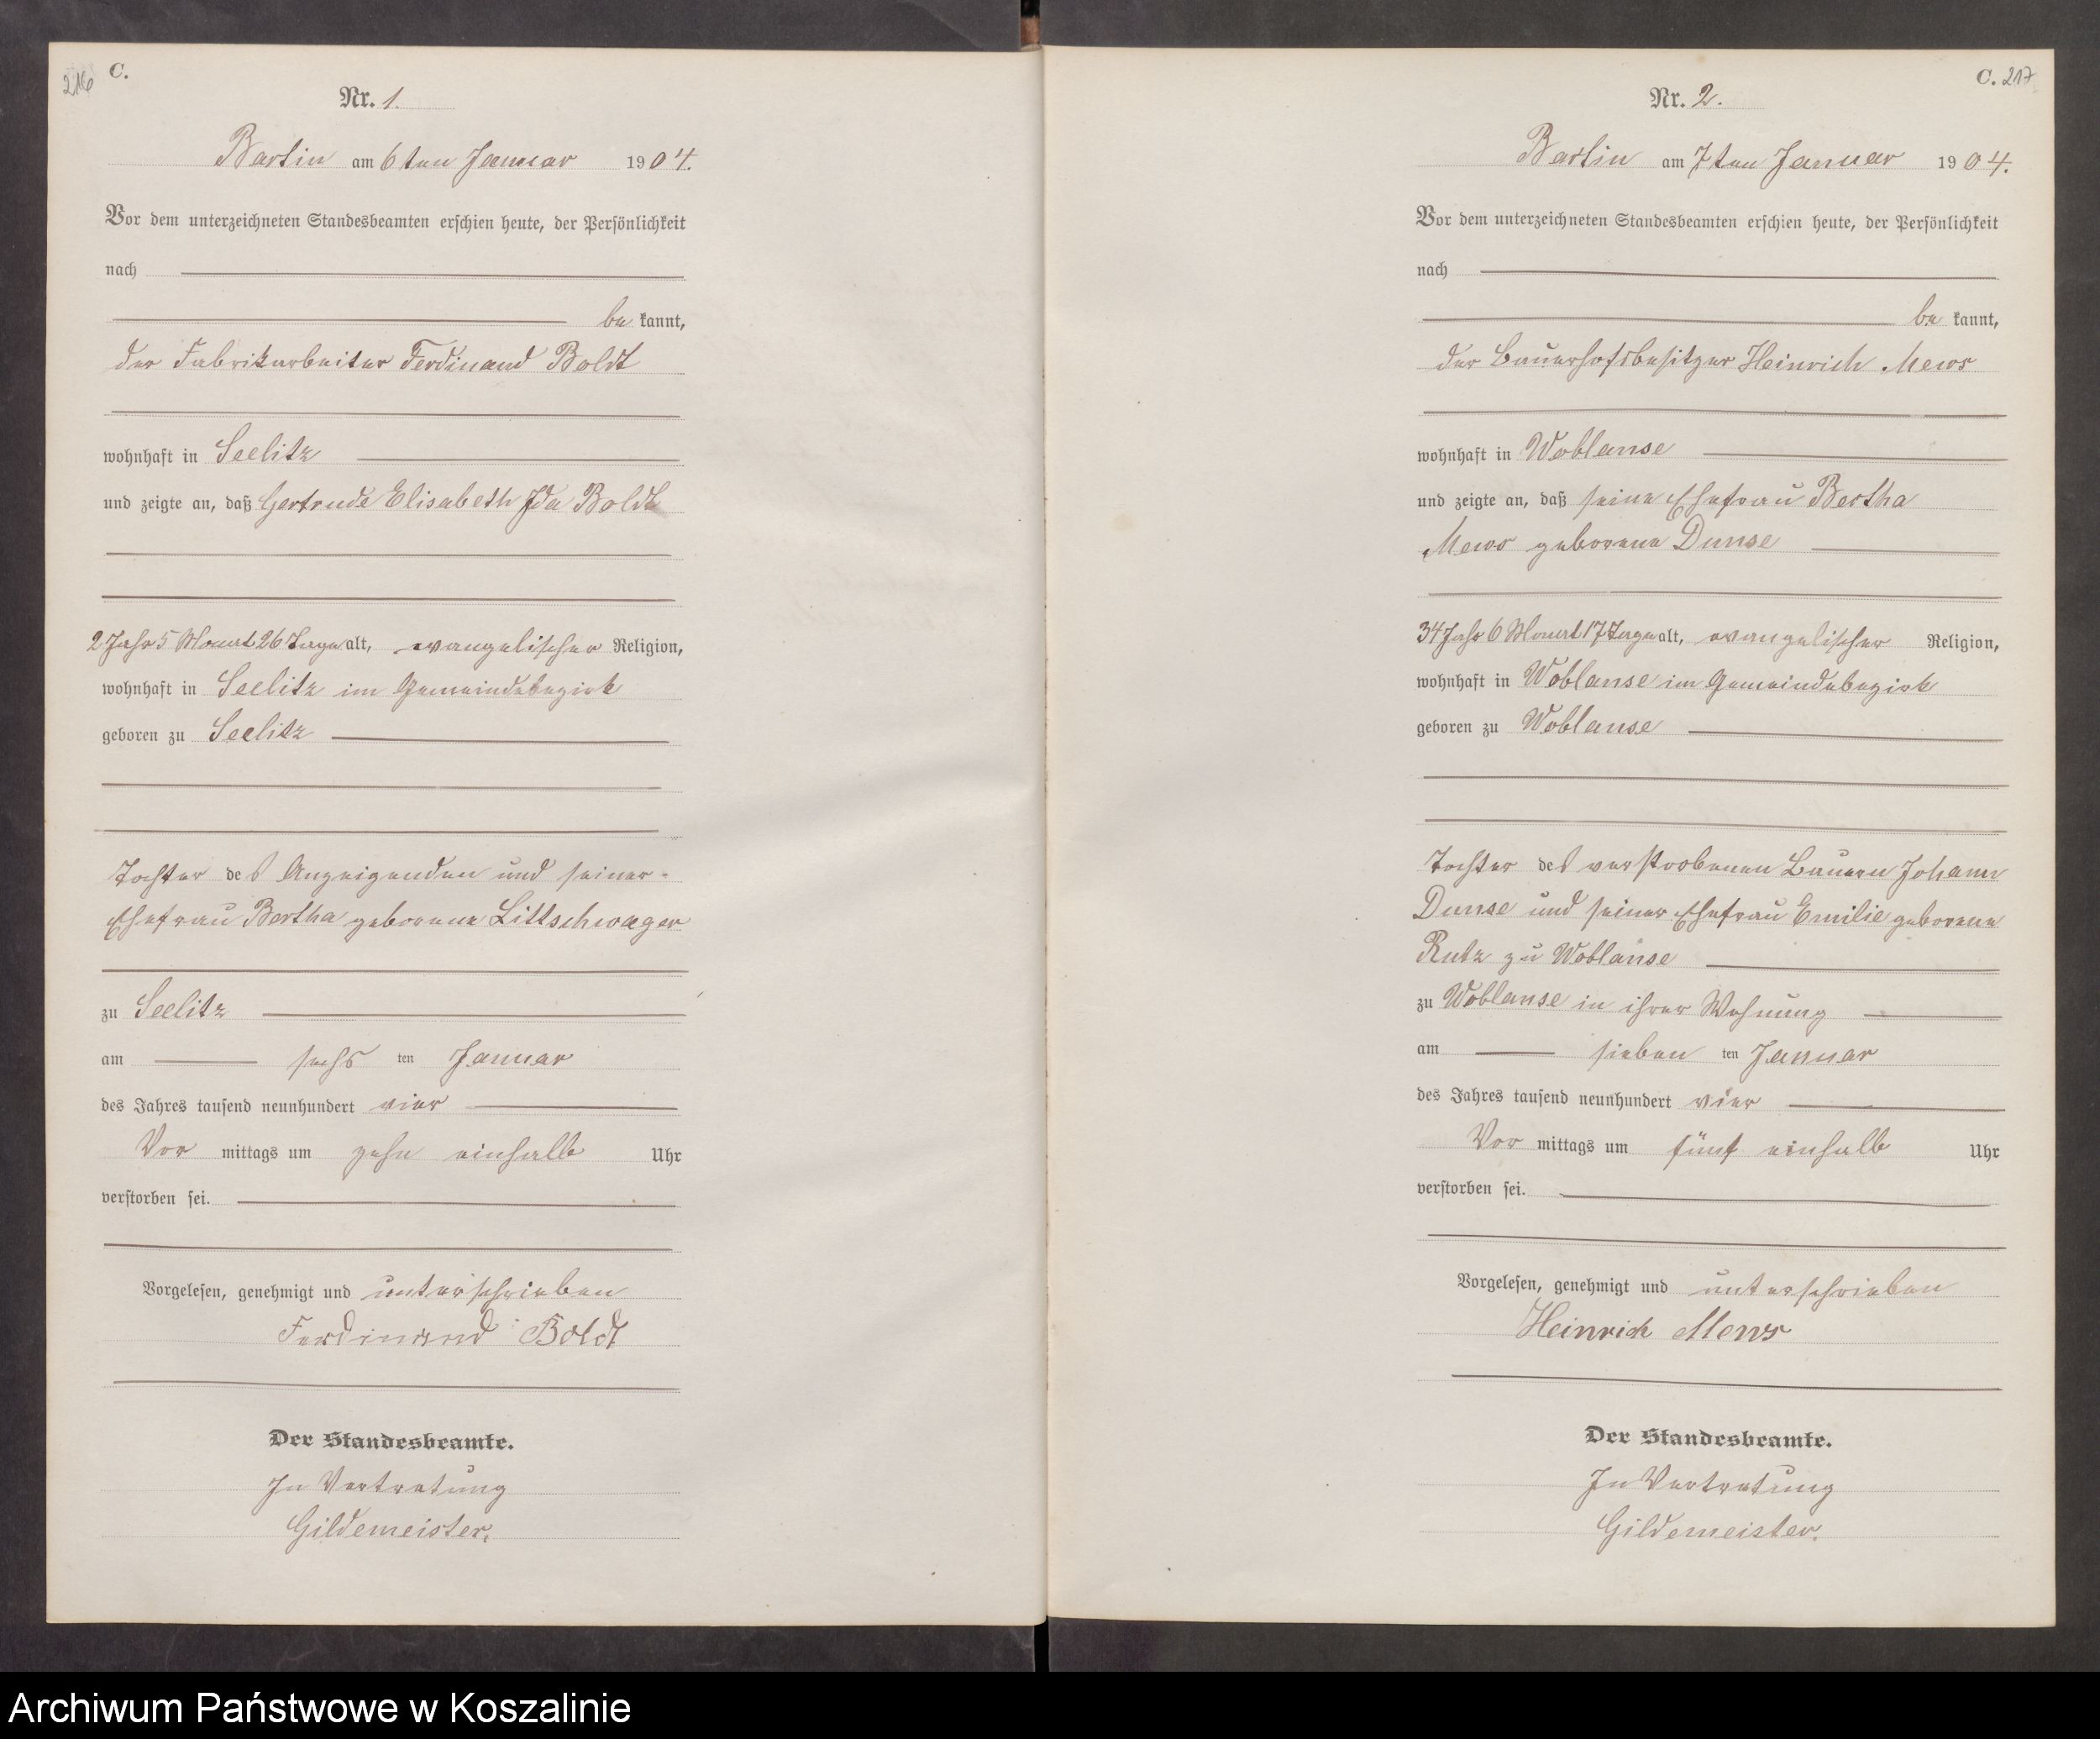 216 C.
Nr. 1.
Bartin am 6ten Januar 1904.
Vor dem unterzeichneten Standesbeamten erschien heute, der Persönlichkeit
nach
be kannt,
der Fabrikarbeiter Ferdinand Boldt
wohnhaft in Seelitz
und zeigte an, daß Gertrude Elisabeth Ida Boldt
2 Jahr 5 Monat 26 Tage alt, evangelischer Religion,
wohnhaft in Seelitz im Gemeindebezirk
geboren zu Seelitz
Tochter des Anzeigenden und seiner
Ehefrau Bertha geborene Littschwager
zu Seelitz
am sechs ten Januar
des Jahres tausend neunhundert vier
Vor mittags um zehn einhalb Uhr
verstorben sei.
Vorgelesen, genehmigt und unterschrieben
Ferdinand Boldt
Der Standesbeamte.
In Vertretung
Gildemeister.
C. 217
Nr. 2.
Bartin am 7ten Januar 1904.
Vor dem unterzeichneten Standesbeamten erschien heute, der Persönlichkeit
nach
be kannt,
der Bauerhofsbesitzer Heinrich Mews
wohnhaft in Woblanse
und zeigte an, daß seine Ehefrau Bertha
Mews geborene Dunse
34 Jahr 6 Monat 17 Tage alt, evangelischer Religion,
wohnhaft in Woblanse im Gemeindebezirk
geboren zu Woblanse
Tochter des verstorbenen Bauern Johann
Dunse und seiner Ehefrau Emilie geborene
Rutz zu Woblanse
zu Woblanse in ihrer Wohnung
am sieben ten Januar
des Jahres tausend neunhundert vier
Vor mittags um fünf einhalb Uhr
verstorben sei.
Vorgelesen, genehmigt und unterschrieben
Heinrich Mews
Der Standesbeamte.
In Vertretung
Gildemeister.
Archiwum Państwowe w Koszalinie